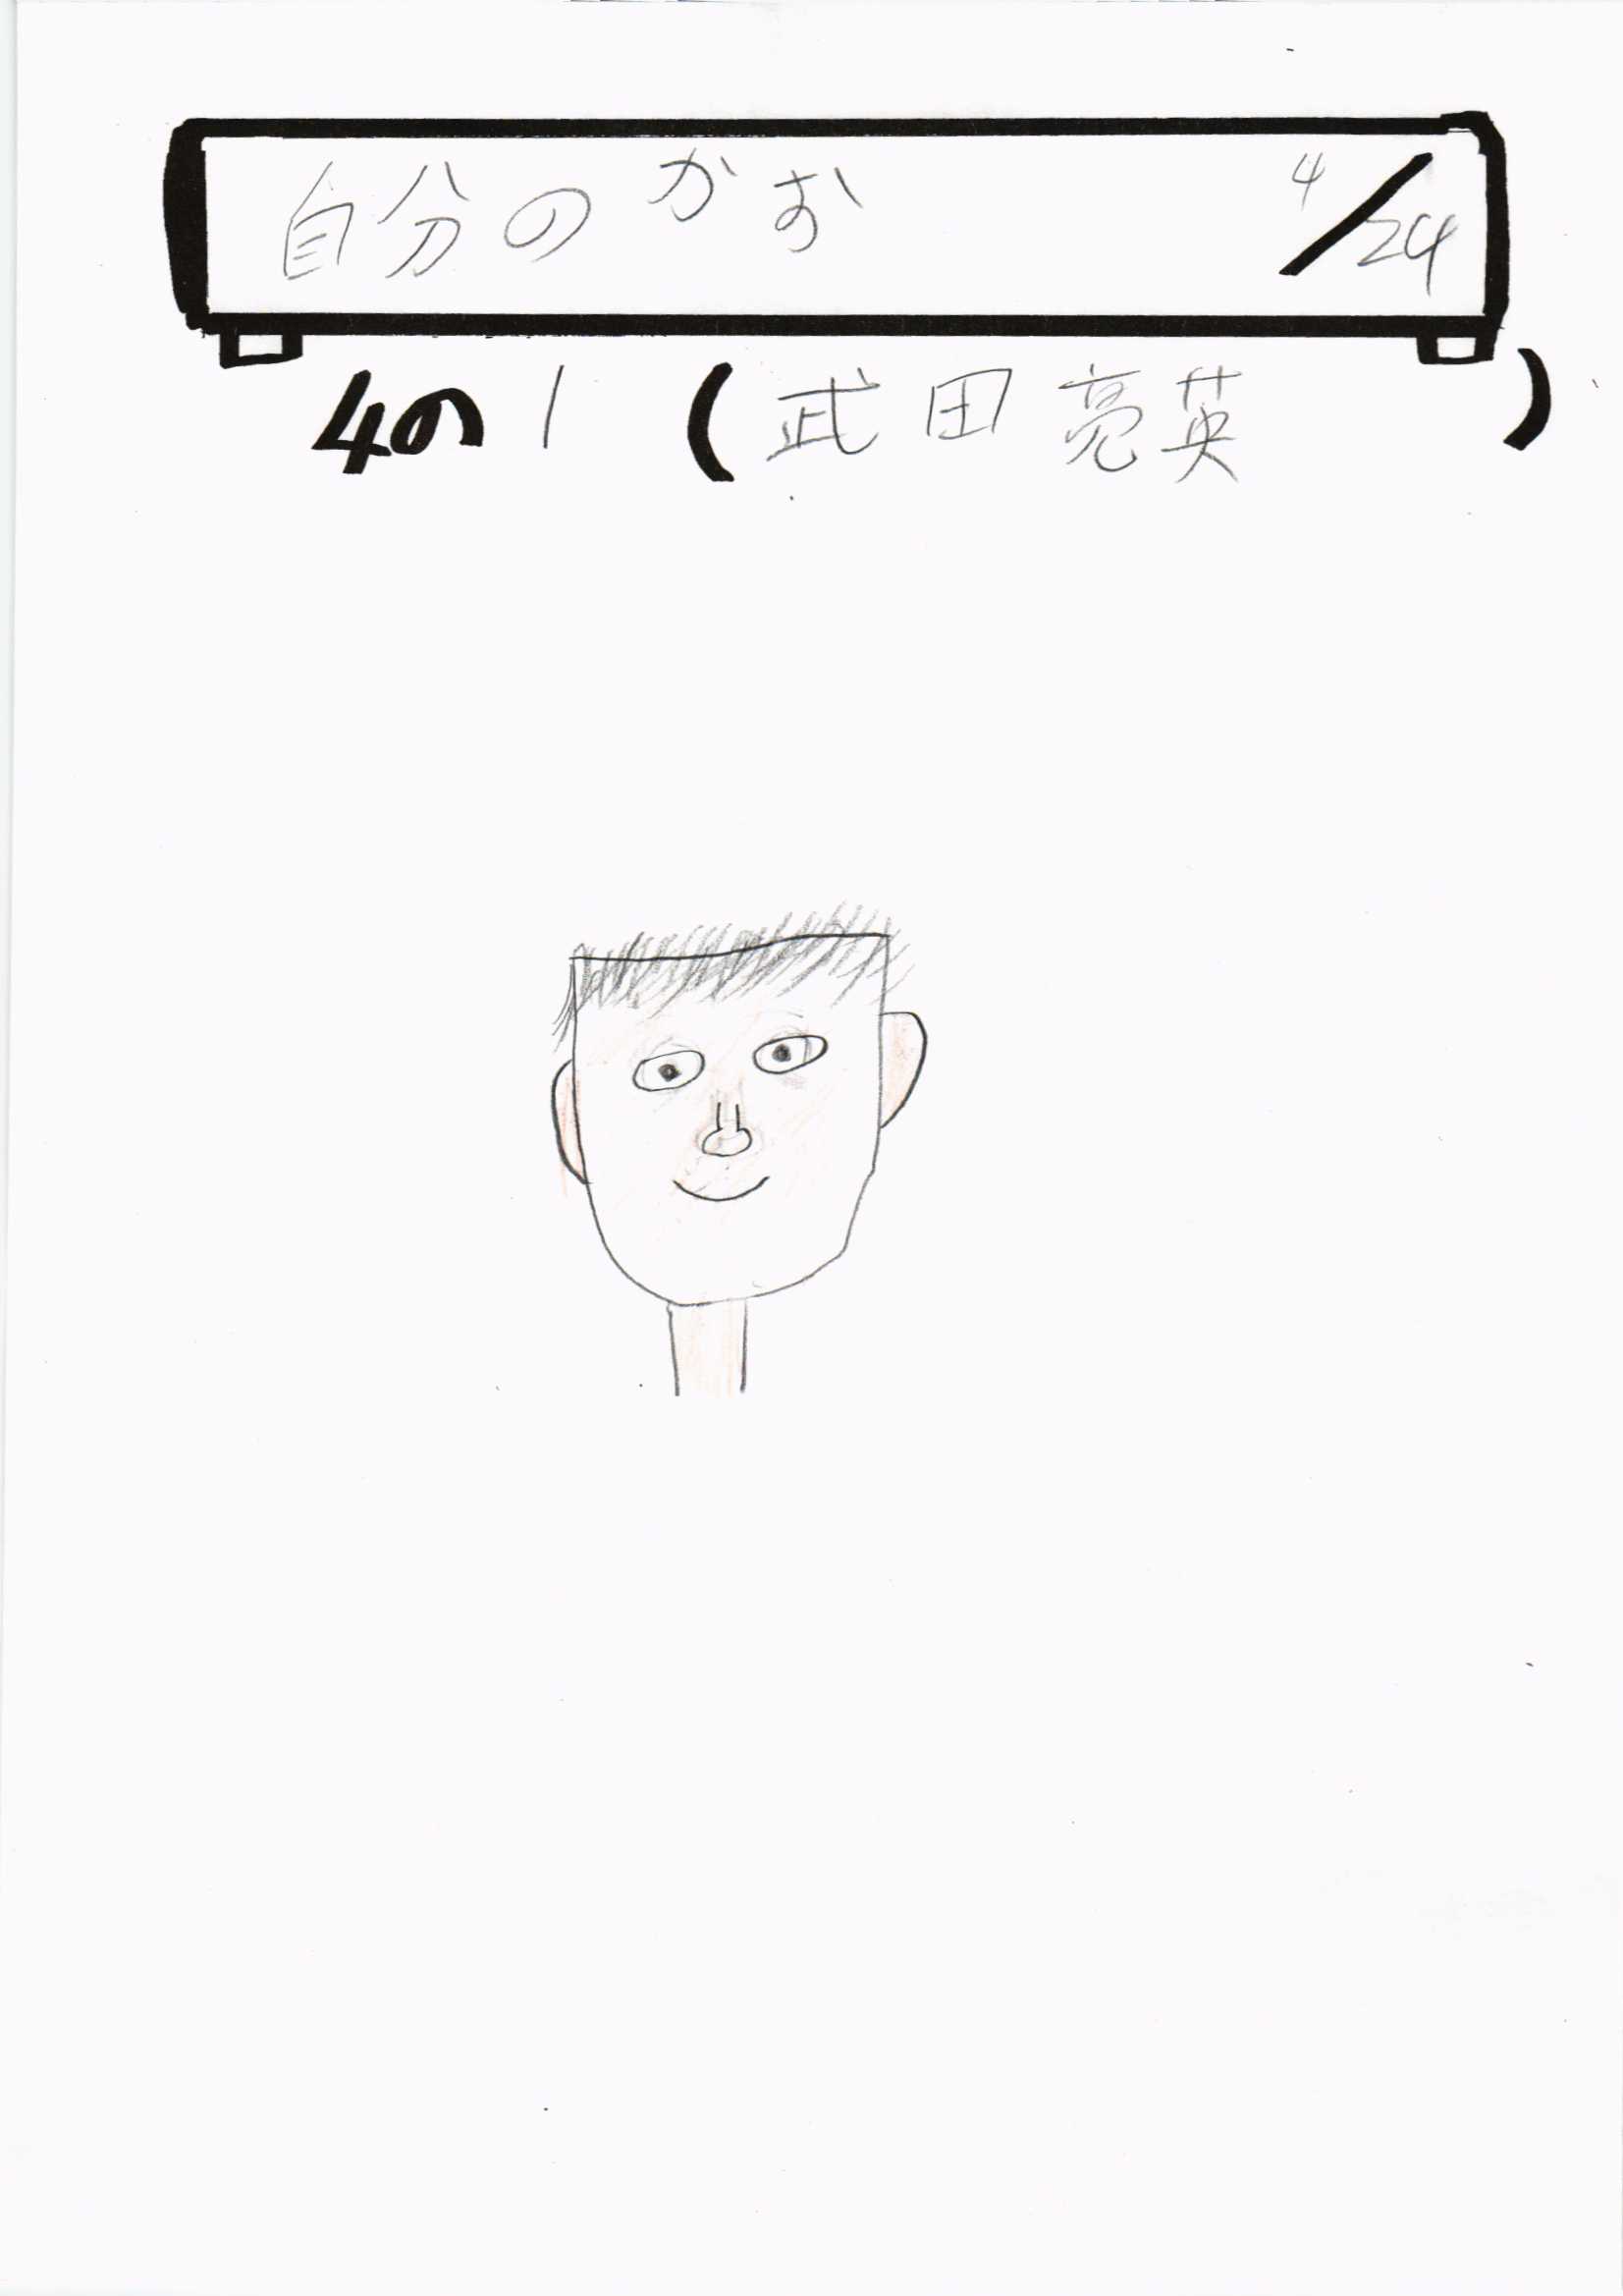 自分のかお 4/24
4の1 (武田亮英)